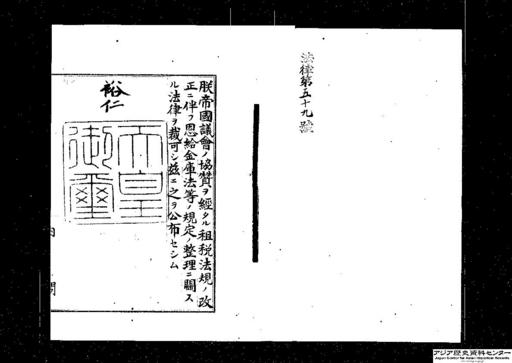 法律第五十九號
朕帝國議會ノ協贊ヲ經タル租税法規ノ改
正ニ伴フ恩給金庫法等ノ規定ノ整理ニ關ス
ル法律ヲ裁可シ茲ニ之ヲ公布セシム
裕仁
天皇
御璽
内閣
アジア歴史資料センター
Japan Center for Asian Historical Records